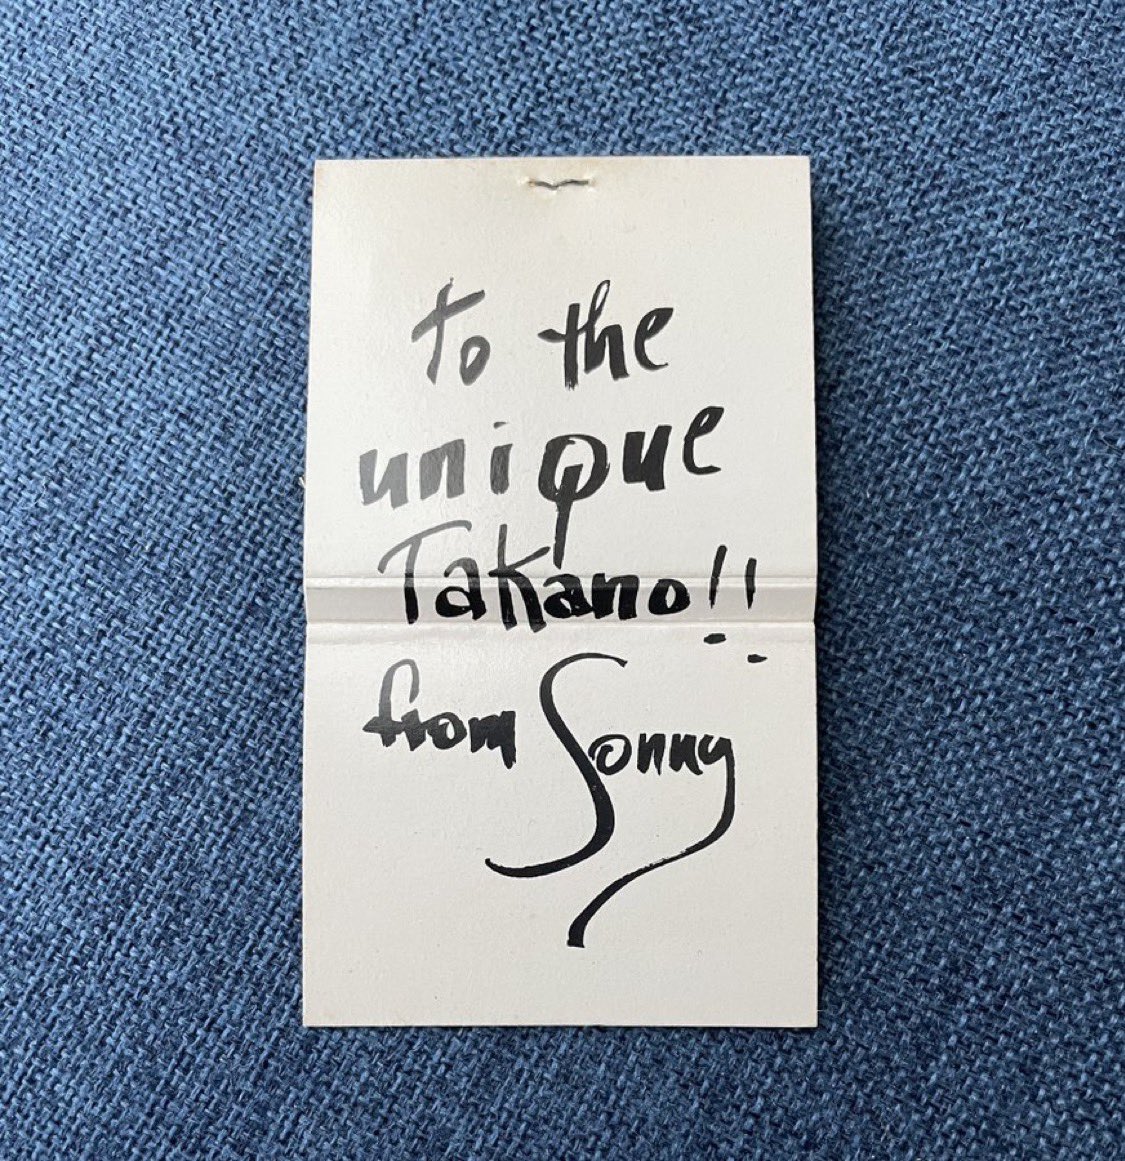 To the
unique
Takano!!
from Sonny